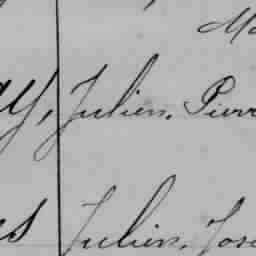 Julien, Pierr
Julien, Jose